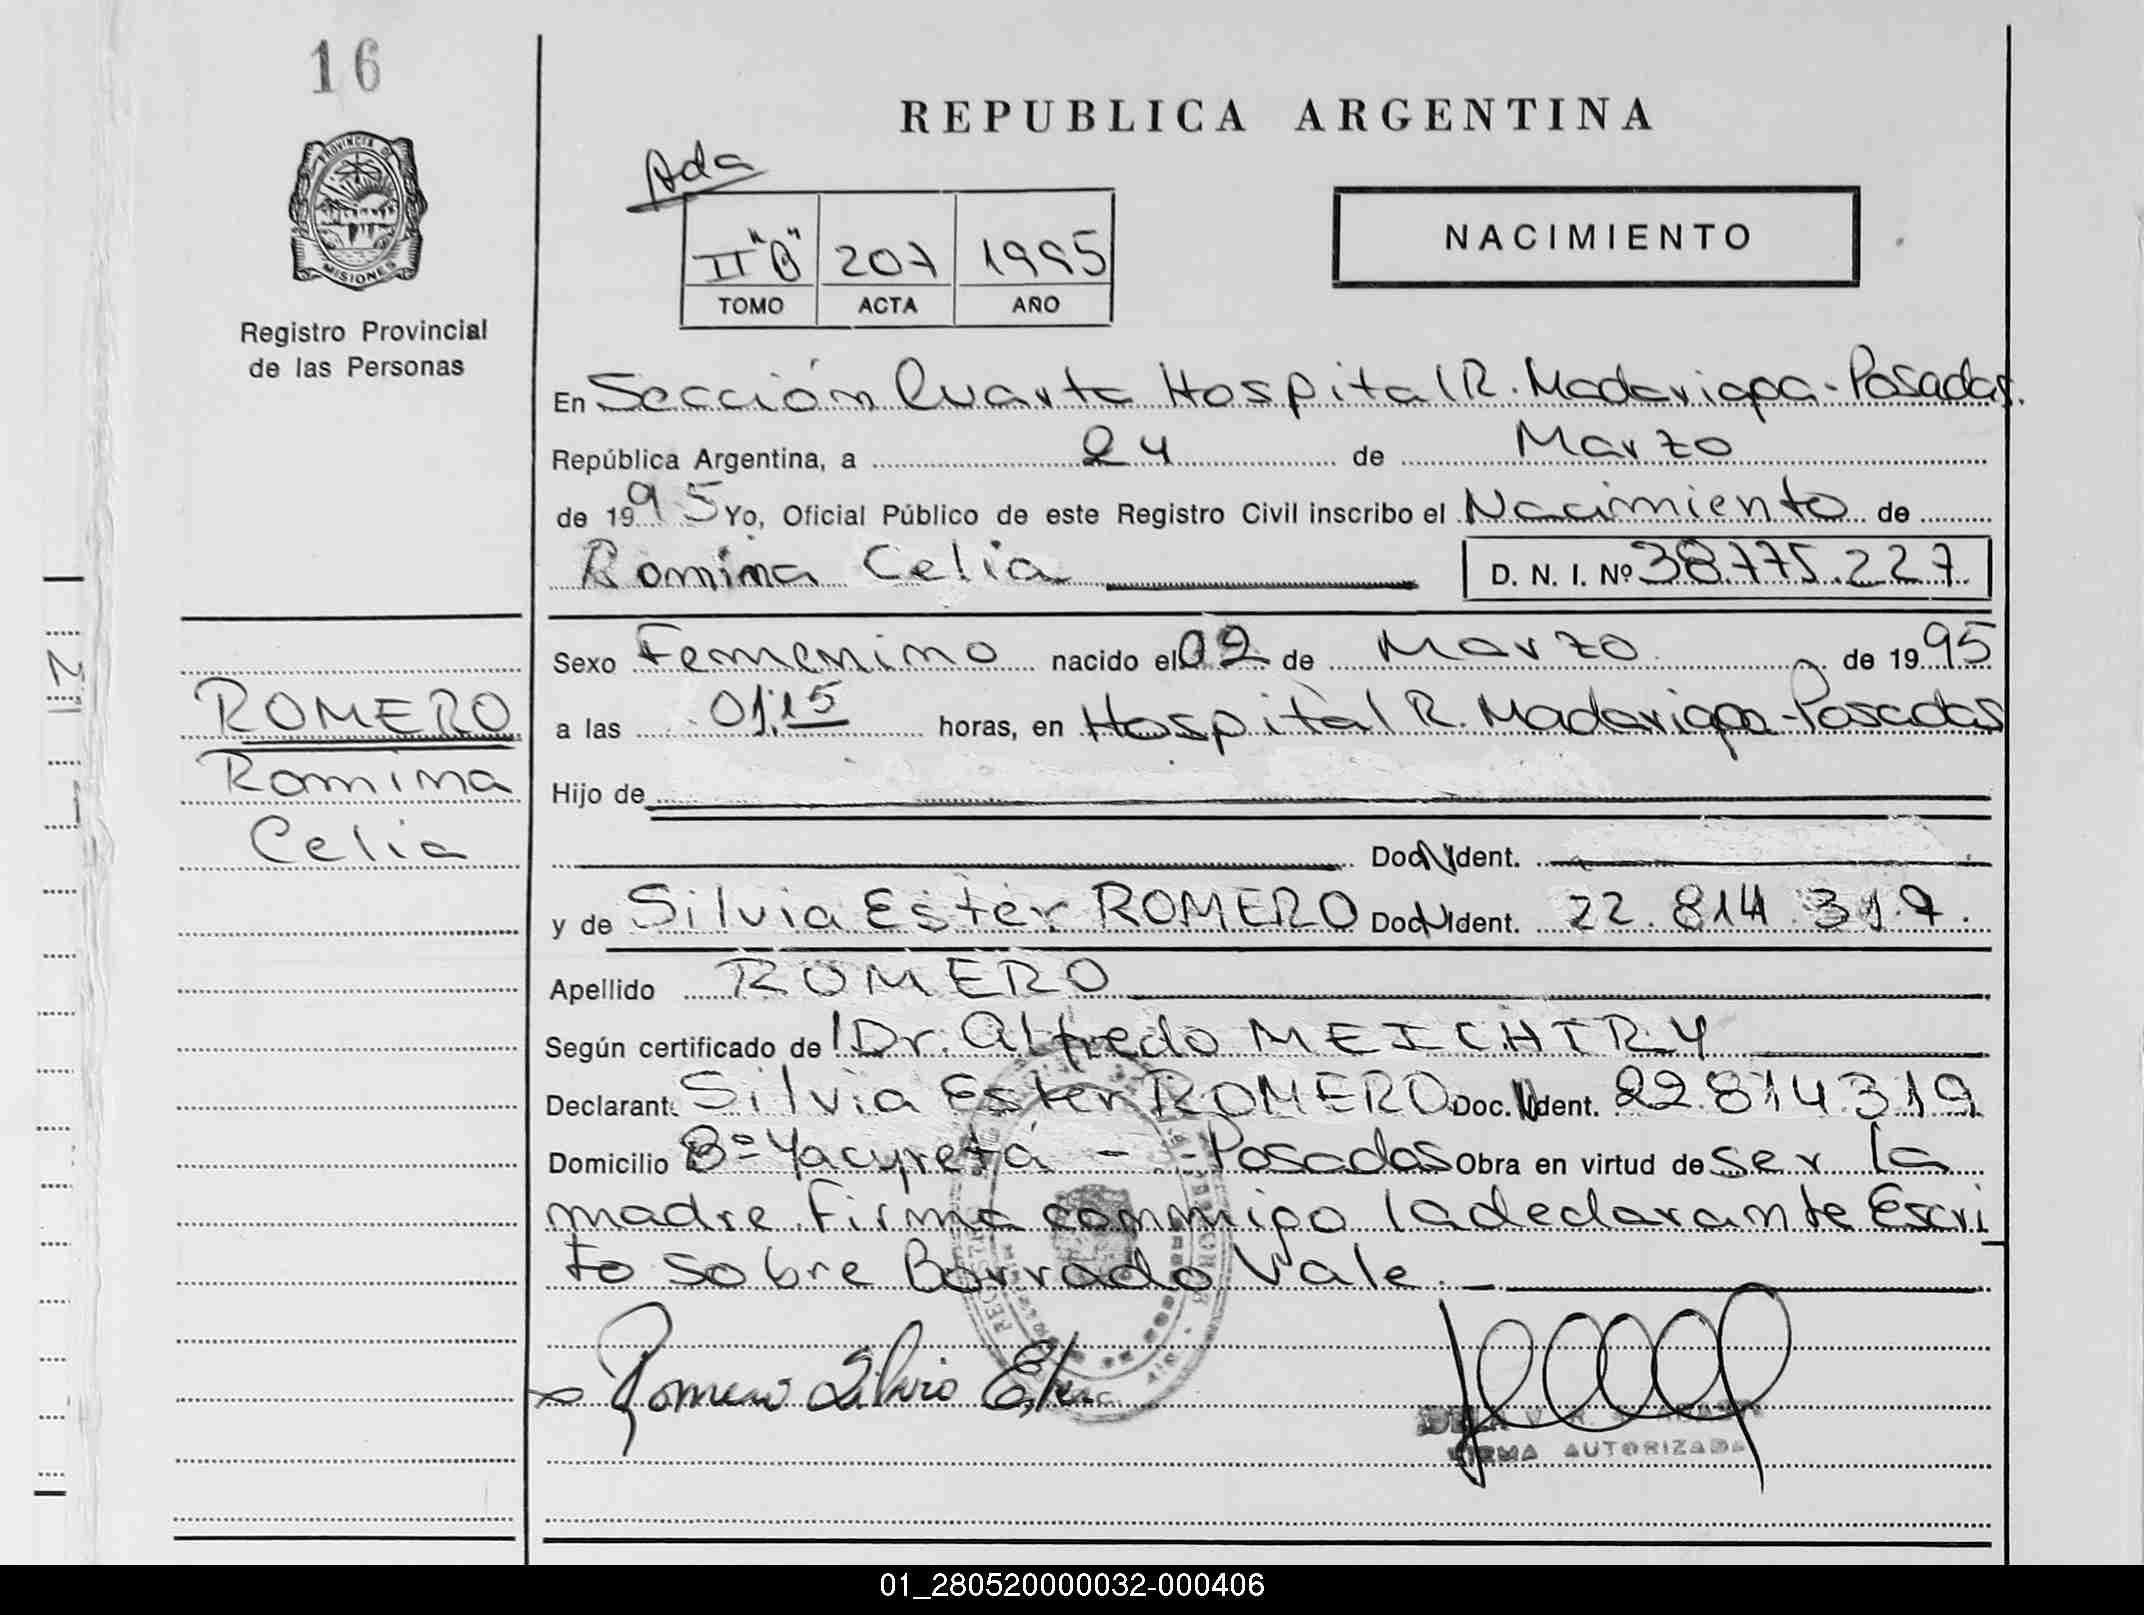 16
PROVINCIA DE
MISIONES
Registro Provincial
de las Personas
REPUBLICA ARGENTINA
Ada
II "B" 207 1995
TOMO ACTA AÑO
NACIMIENTO
En Sección Cuarta Hospital R. Madariaga - Posadas.
República Argentina, a 24 de Marzo
de 1995 Yo, Oficial Público de este Registro Civil inscribo el Nacimiento de
Romina Celia D. N. I. Nº 38.775.227
Sexo Femenino nacido el 02 de Marzo de 1995
a las 01,15 horas, en Hospital R. Madariaga - Posadas
Hijo de
Doc. N. Ident.
y de Silvia Ester ROMERO Doc. N. Ident. 22.814.319.
Apellido ROMERO
Según certificado de Dr. Alfredo MEICHTRY
Declarant. Silvia Ester ROMERO Doc. N. Ident. 22.814.319
Domicilio Bº Yacyretá - - Posadas Obra en virtud de ser la
madre. Firma conmigo la declarante Escri
to sobre Borrado Vale. -
Romero Silvia Ester
FIRMA AUTORIZADA
ROMERO
Romina
Celia
01_280520000032-000406